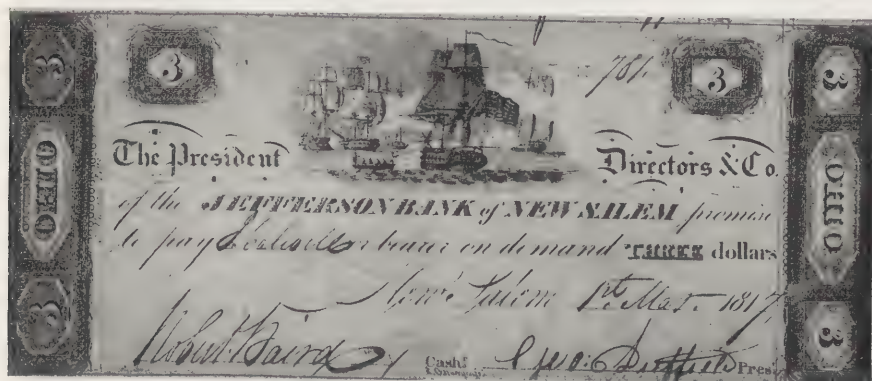 3 3 3 3
781
The President Directors & Co.
OHIO OHIO
of the JEFFERSON BANK of NEW SALEM promise
to pay or bearer on demand THREE dollars
New Salem 1st Mar. 1817
Robert Baird Cashr. Geo. Prest.
3 3